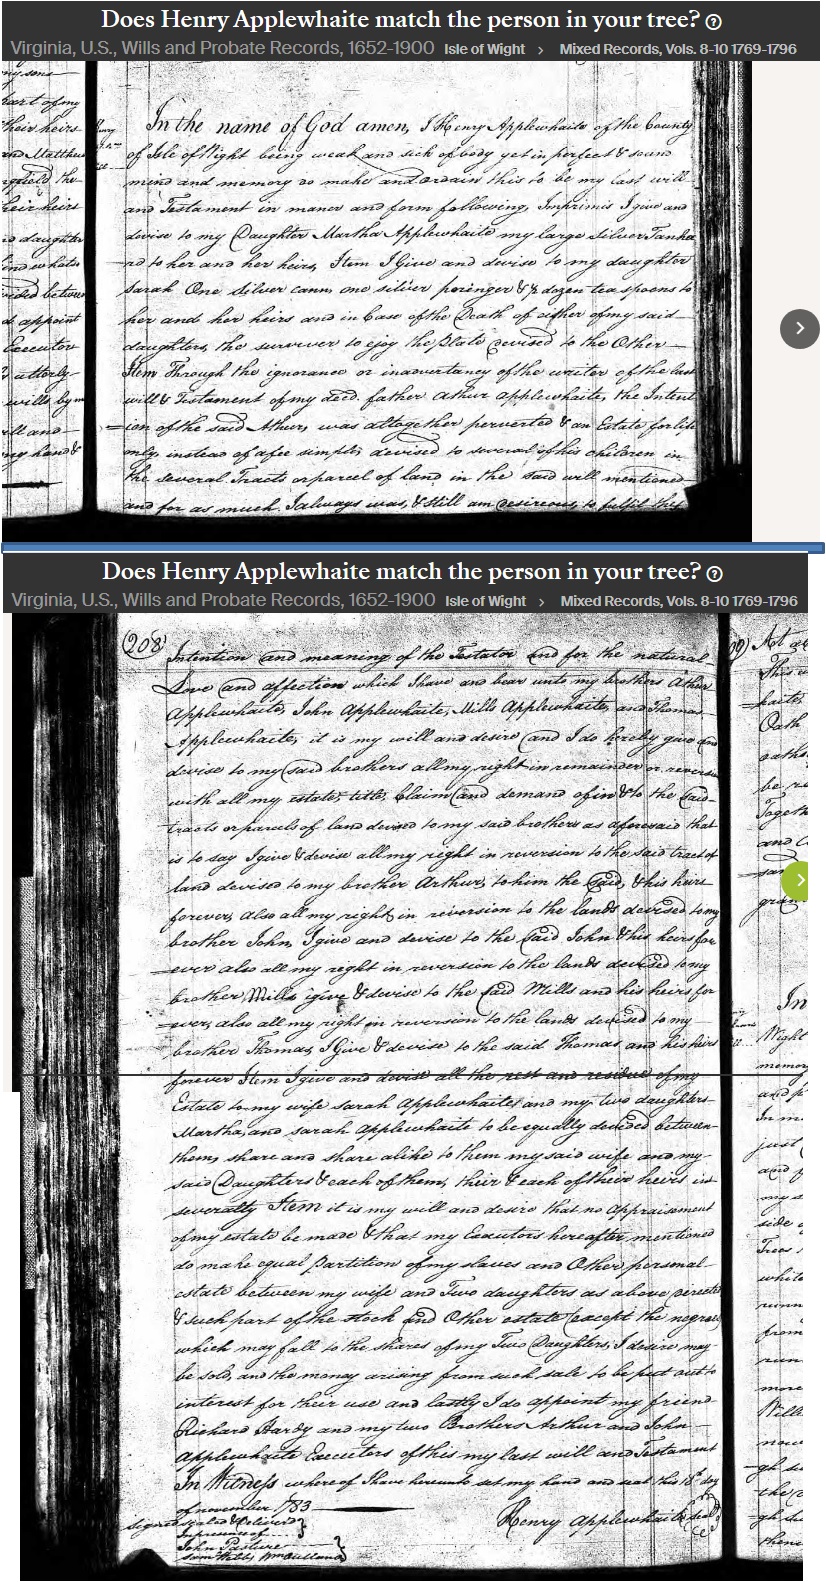 Does Henry Applewhaite match the person in your tree?
Virginia, U.S., Wills and Probate Records, 1652-1900 Isle of Wight > Mixed Records, Vols. 8-10 1769-1796
my sons
part of my
their heirs
and Matthew
the
heir heirs
daughter
between
appoint
Executor
utterly
wills by m
and
my hand &
In the name of God amen, I Henry Applewhaite of the County
of Isle of Wight being weak and sick of body yet in perfect & sound
mind and memory do make and ordain this to be my last will
and Testament in maner and form following, Imprimis I give and
devise to my Daughter Martha Applewhaite my large Silver Tanka
rd to her and her heirs, Item I Give and devise to my daughter
Sarah One Silver cann, one silver poringer & ½ dozen tea spoons to
her and her heirs and in Case of the Death of either of my said
daughters, the surviver to ejoy the Plate devised to the Other
Item Through the ignorance or inadvertancy of the writer of the last
will & Testament of my decd. father Athur applewhaite, the Intent
=ion of the said Athur, was altogether perverted & an Estate for life
only, instead of a fee simple, devised to several of his children in
the several Tracts or parcel of land in the said will mentioned
and for as much I always was, & still am desireous, to fulfil the
Does Henry Applewhaite match the person in your tree?
Virginia, U.S., Wills and Probate Records, 1652-1900 Isle of Wight > Mixed Records, Vols. 8-10 1769-1796
(208)
Intention and meaning of the Testator and for the natural
Love and affection which I have and bear unto my brothers Athur
Applewhaite, John Applewhaite, Mills Applewhaite, and Thomas
Applewhaite, it is my will and desire and I do hereby give and
devise to my said brothers all my right in remainder or reversion
with all my estate, title, Claim and demand of in & to the said
tracts or parcels of land devised to my said brothers as aforesaid that
is to say I give & devise all my right in reversion to the said tract of
land devised to my brother Arthur, to him the said, & his heirs
forever, also all my right in reversion to the lands devised to my
brother John, I give and devise to the said John & his heirs for
=ever also all my reght in reversion to the lands devised to my
brother Mills I give & devise to the said Mills and his heirs for
=ever, also all my right in reversion to the lands devised to my
brother Thomas, I Give & devise to the said Thomas and his heirs
forever Item I give and devise all the rest and residue of my
Estate to my wife Sarah Applewhaite and my two daughters
Martha, and sarah Applewhaite to be equally devided between
them, share and share alike to them my said wife and my
said Daughters & each of them, their & each of their heirs in
severalty Item it is my will and desire that no appraisement
of my estate be made & that my Executors hereafter mentioned
do make equal Partition of my slaves and Other personal
estate between my wife and Two daughters as above directed
& such part of the stock and Other estate (except the negroes)
which may fall to the shares of my Two Daughters, I desire may
be sold, and the money arising from such sale to be put out to
interest for their use and lastly I do appoint my friend
Richard Hardy and my two Brothers Arthur and John
Applewhaite Executors of this my last will and Testament
In Witness whereof I have hereunto set my hand and seal this 18th day
of november 1783
Signed sealed & delivered }
In presence of
John Pasture
Henry Applewhaite (seal)
At
This
Oath
be
Togeth
and
In
Wight
memory
and p
In m
just
and
my
side
Trees
white
runn
from
run
more
Wills
the